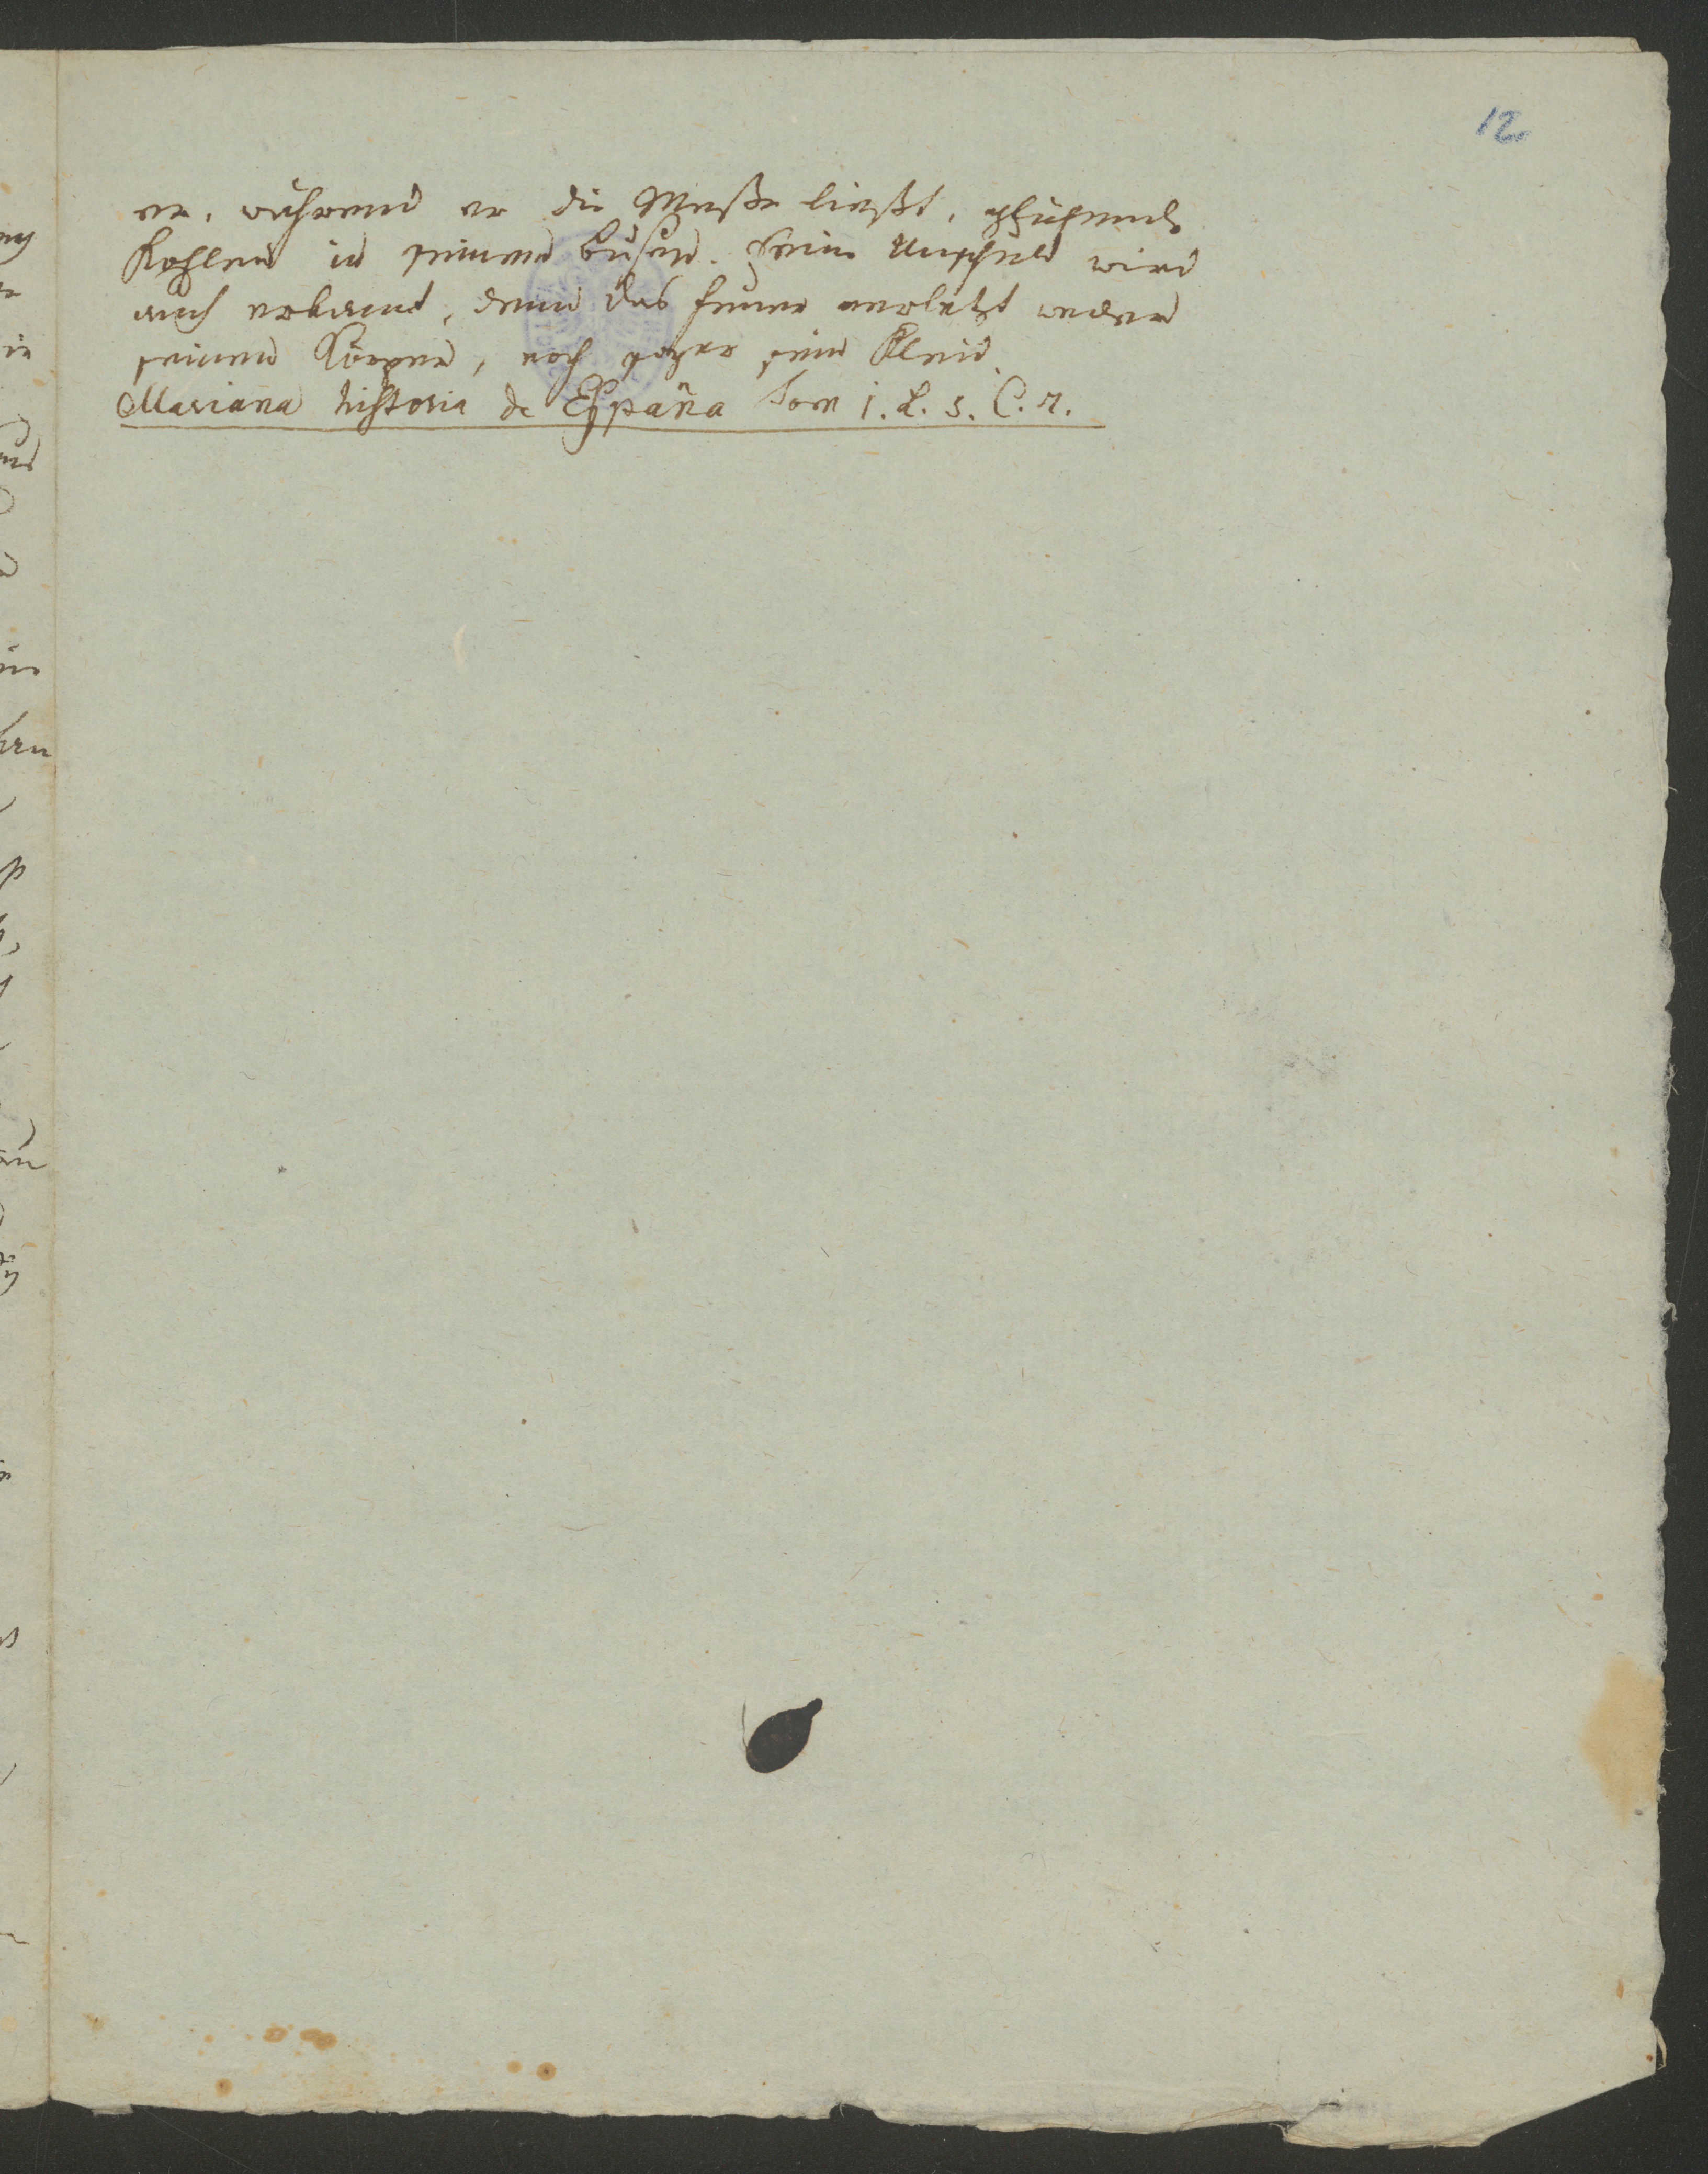 12
er, während er die Messe ließt, glühende
Kohlen in seinem Busen. Seine Unschuld wird
auch erkannt, denn das Feuer verletzt weder
seinen Körper, noch sogar sein Kleid.
Mariana historia de España Tom 1. L. 5. C. 7.